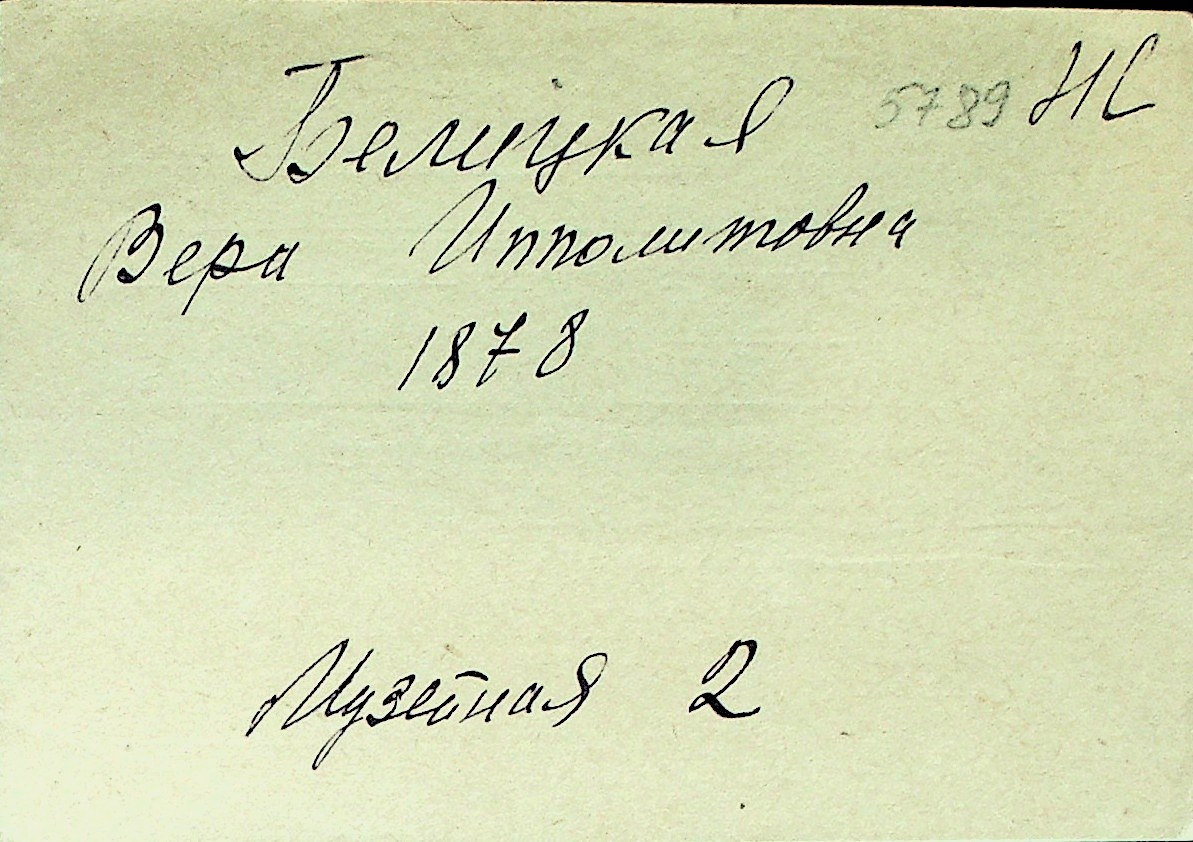 Белицкая 5789 НС
Вера Ипполитовна
1878
Музейная 2